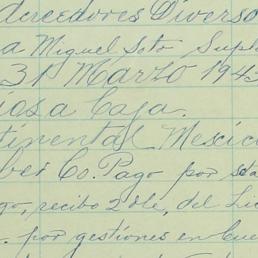 Acreedores Diverso
a Miguel Soto Supte
31 Marzo 1943
iosa Caja.
tinental Mexica
ber Co. Pago por sda
go, recibo 2 de, del Lic
. por gestiones en Cue